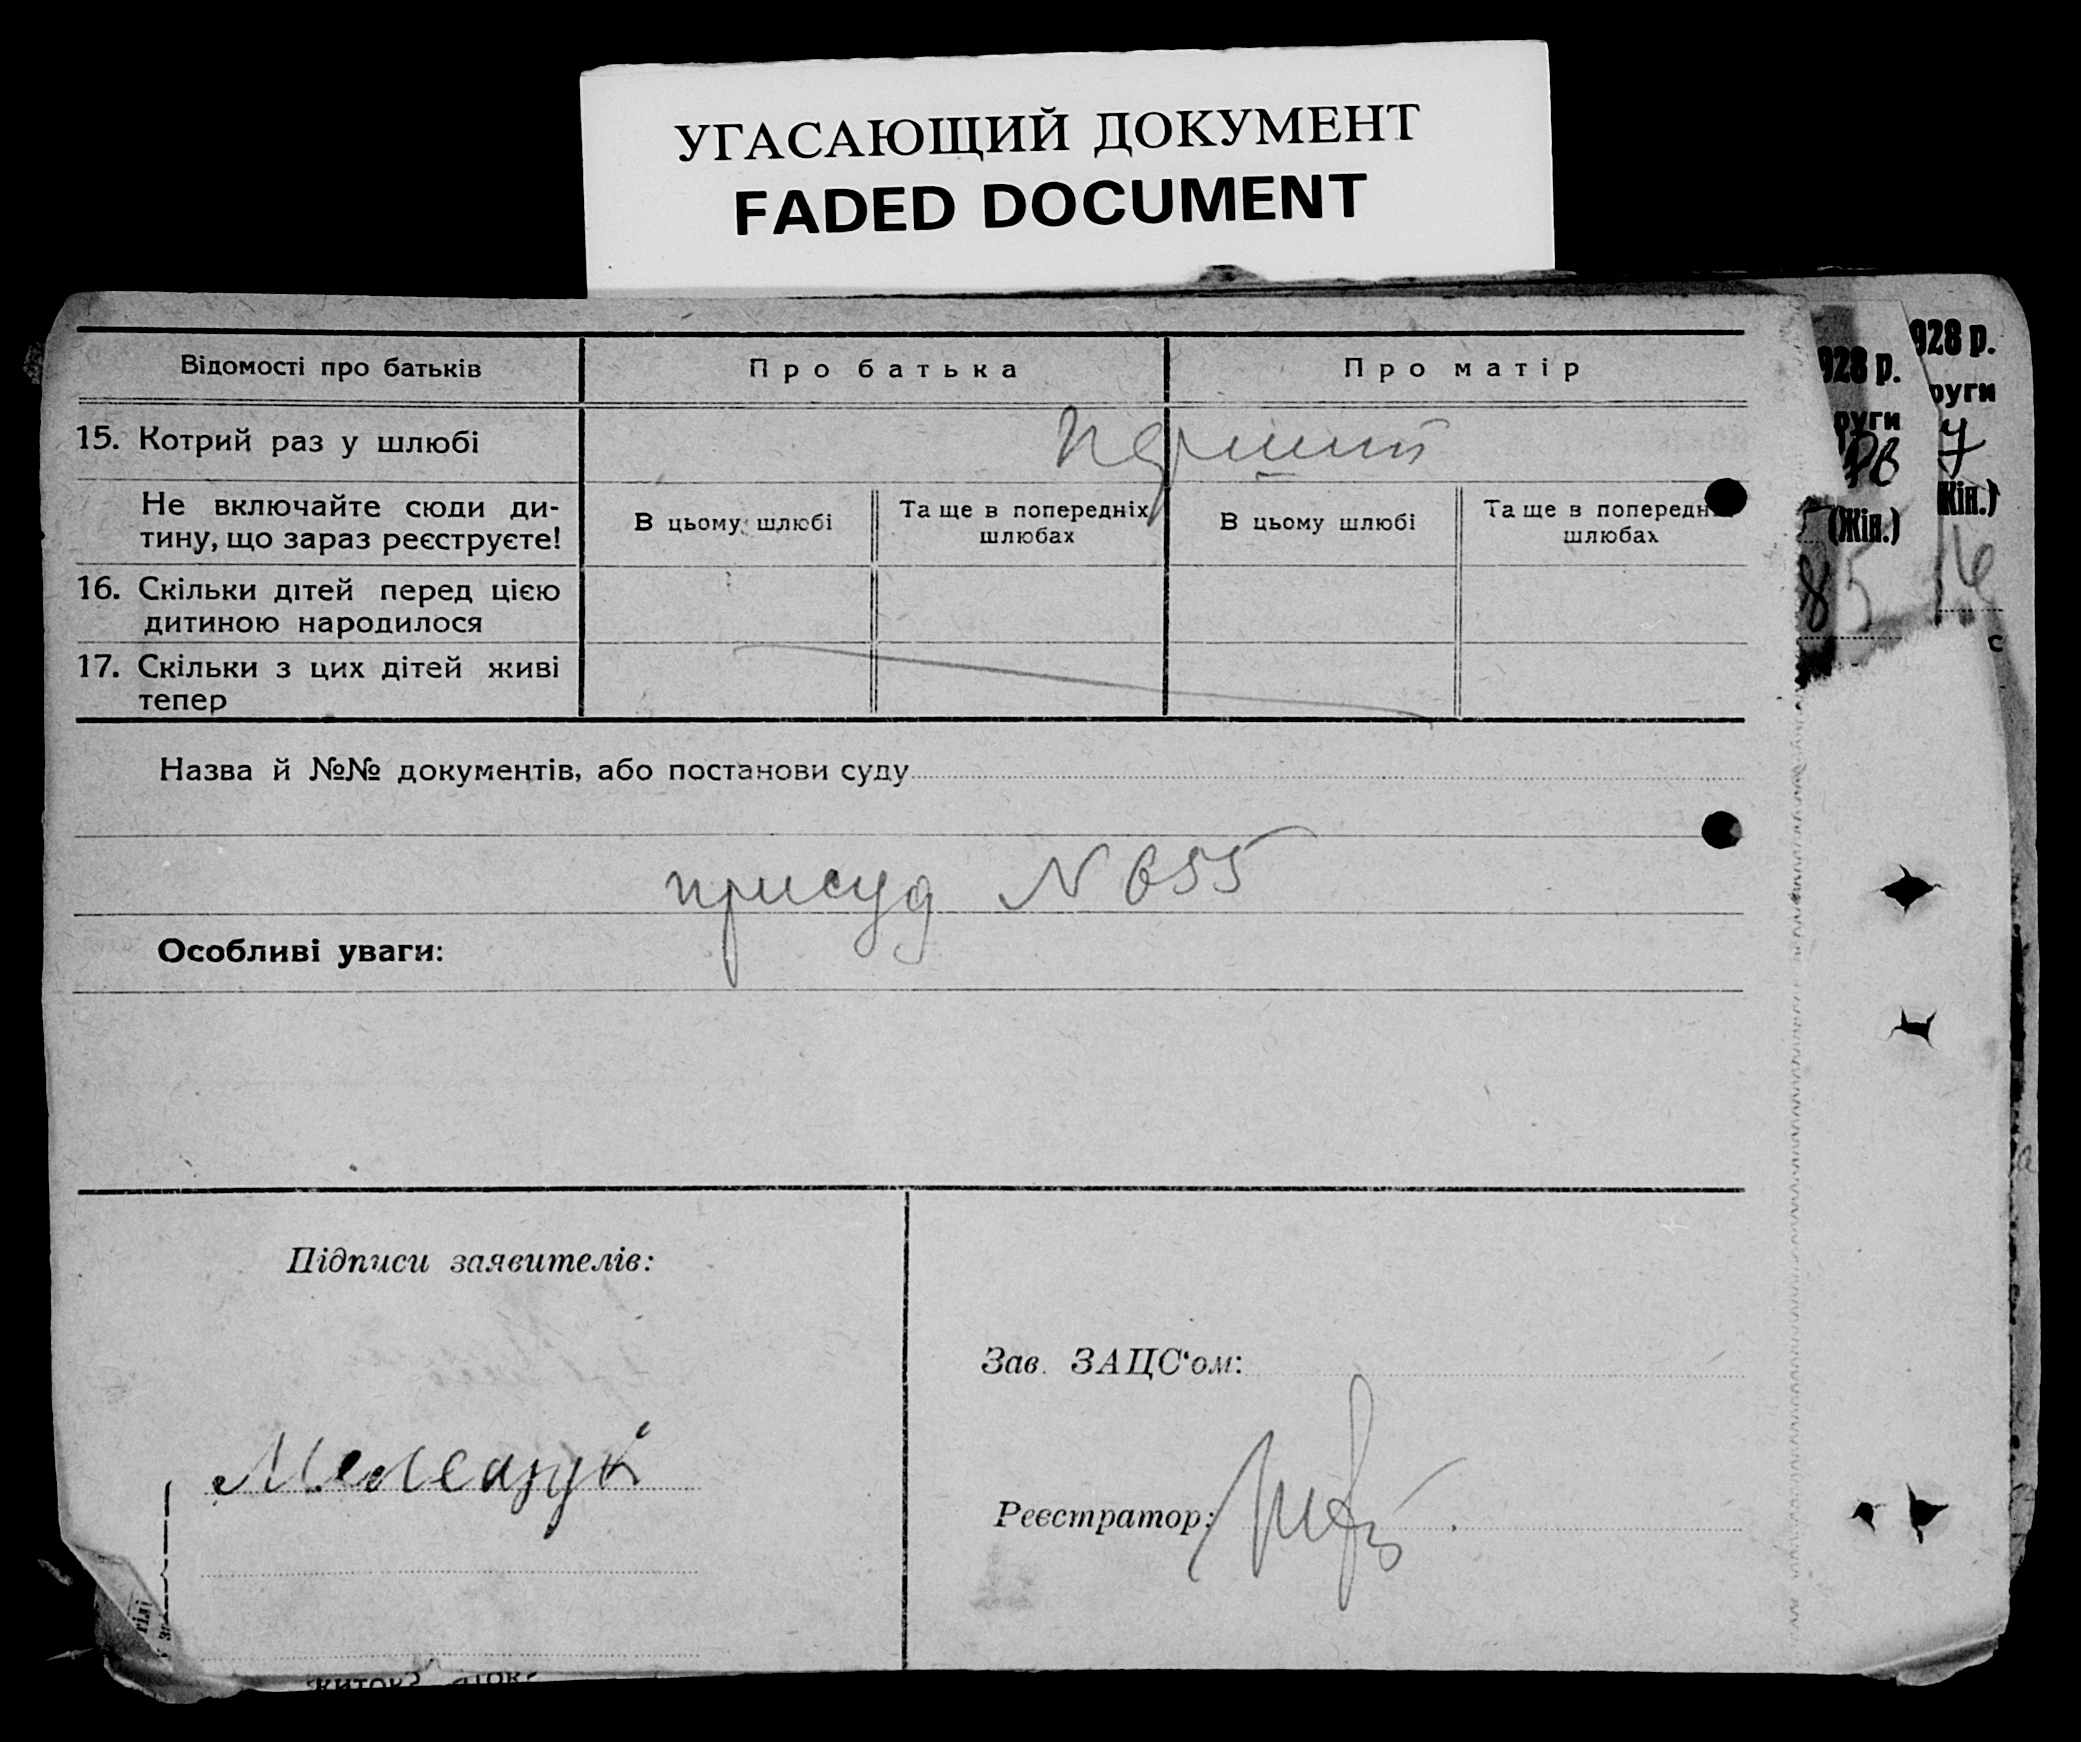 УГАСАЮЩИЙ ДОКУМЕНТ
FADED DOCUMENT
Відомості про батьків
Про батька
Про матір
15. Котрий раз у шлюбі
перший
Не включайте сюди ди-
тину, що зараз реєструєте!
В цьому шлюбі
Та ще в попередніх
шлюбах
В цьому шлюбі
Та ще в попередніх
шлюбах
16. Скільки дітей перед цією
дитиною народилося
17. Скільки з цих дітей живі
тепер
Назва й №№ документів, або постанови суду
присуд N 655
Особливі уваги:
Підписи заявителів:
Зав. ЗАЦС'ом:
Реєстратор:
928 р.
руги
(Жін.)
928 р.
руги
7
Жін.)
с